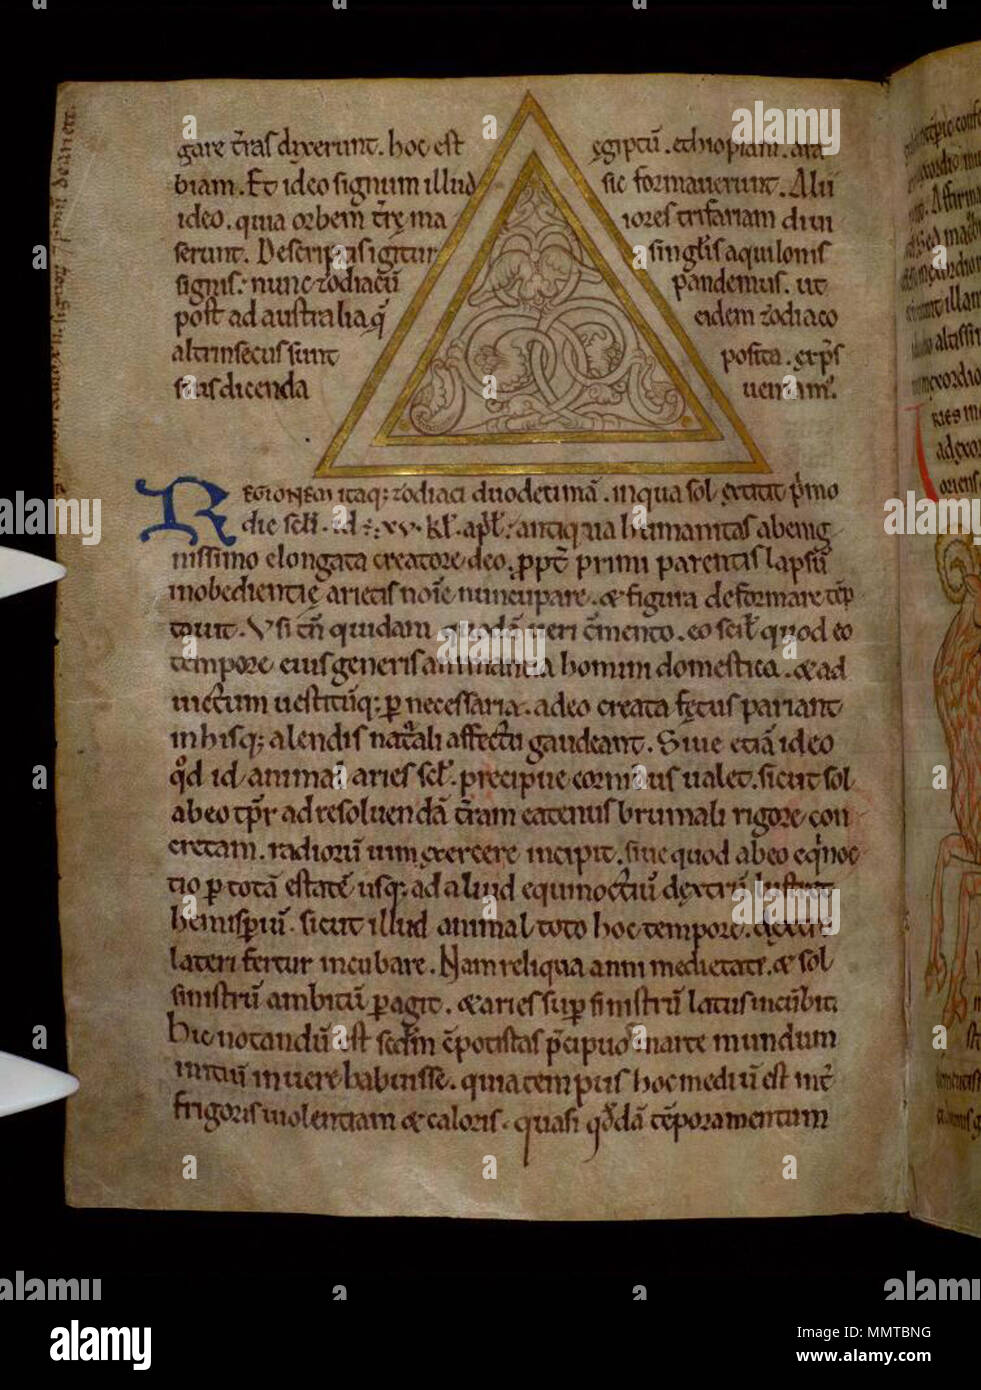 gare t̄ras dixerunt. hoc est egiptū. ethiopiam. ara
biam. Et ideo signum illud sic formauerunt. Alii
ideo. quia orbem t̄rę ma iores trifariam diui
serunt. Descriptis igitur singlis aquilonis
signis: nunc zodiacū pandemus. ut
post ad australia q̄ eidem zodiaco
altrinsecus sunt posita. exp̄s
sius dicenda ueniam.
REGIONEM itaq; zodiaci duodecimā. in qua sol extitit p̄mo
die scłi. id ē xv. kł. apł. antiqua humanitas a benig
nissimo elongata creatore deo. ꝓpt̄ primi parentis lapsū
inobedientię arietis noīe nuncupare. & figura deformare cēp
tauit. Vsi tn̄ quidam quodā ueri c̄mento. eo scił quod eo
tempore eius generis animantia hominū domestica. & ad
uictum uestitūq; ꝑ necessaria. adeo creata fętus pariant
inhisq; alendis nat̄ali affectu gaudeant. Siue etiā ideo
qd id animal aries scł. precipue cornibus ualet. sicut sol
ab eo tp̄r ad resoluendā t̄ram eatenus brumali rigore con
cretam. radiorū uim exercere incipit. siue quod ab eo eq̄noc
tio ꝑ totā estatē usq; ad aliud equinoctiū dextrū lustrat
hemispiū. sicut illud animal toto hoc tempore. dextro
lateri fertur incubare. Nam reliqua anni medietate. & sol
sinistrū ambitū ꝑagit. & aries sup sinistrū latus incūbit.
Hic notandū est secdm c̄potistas p̄cipuos in arte mundum
initiū in uere habuisse. quia tempus hoc mediū est int̄
frigoris uiolentiam & caloris. quasi qddā tēporamentum
alamy
alamy
Image ID: MMTBNG
www.alamy.com